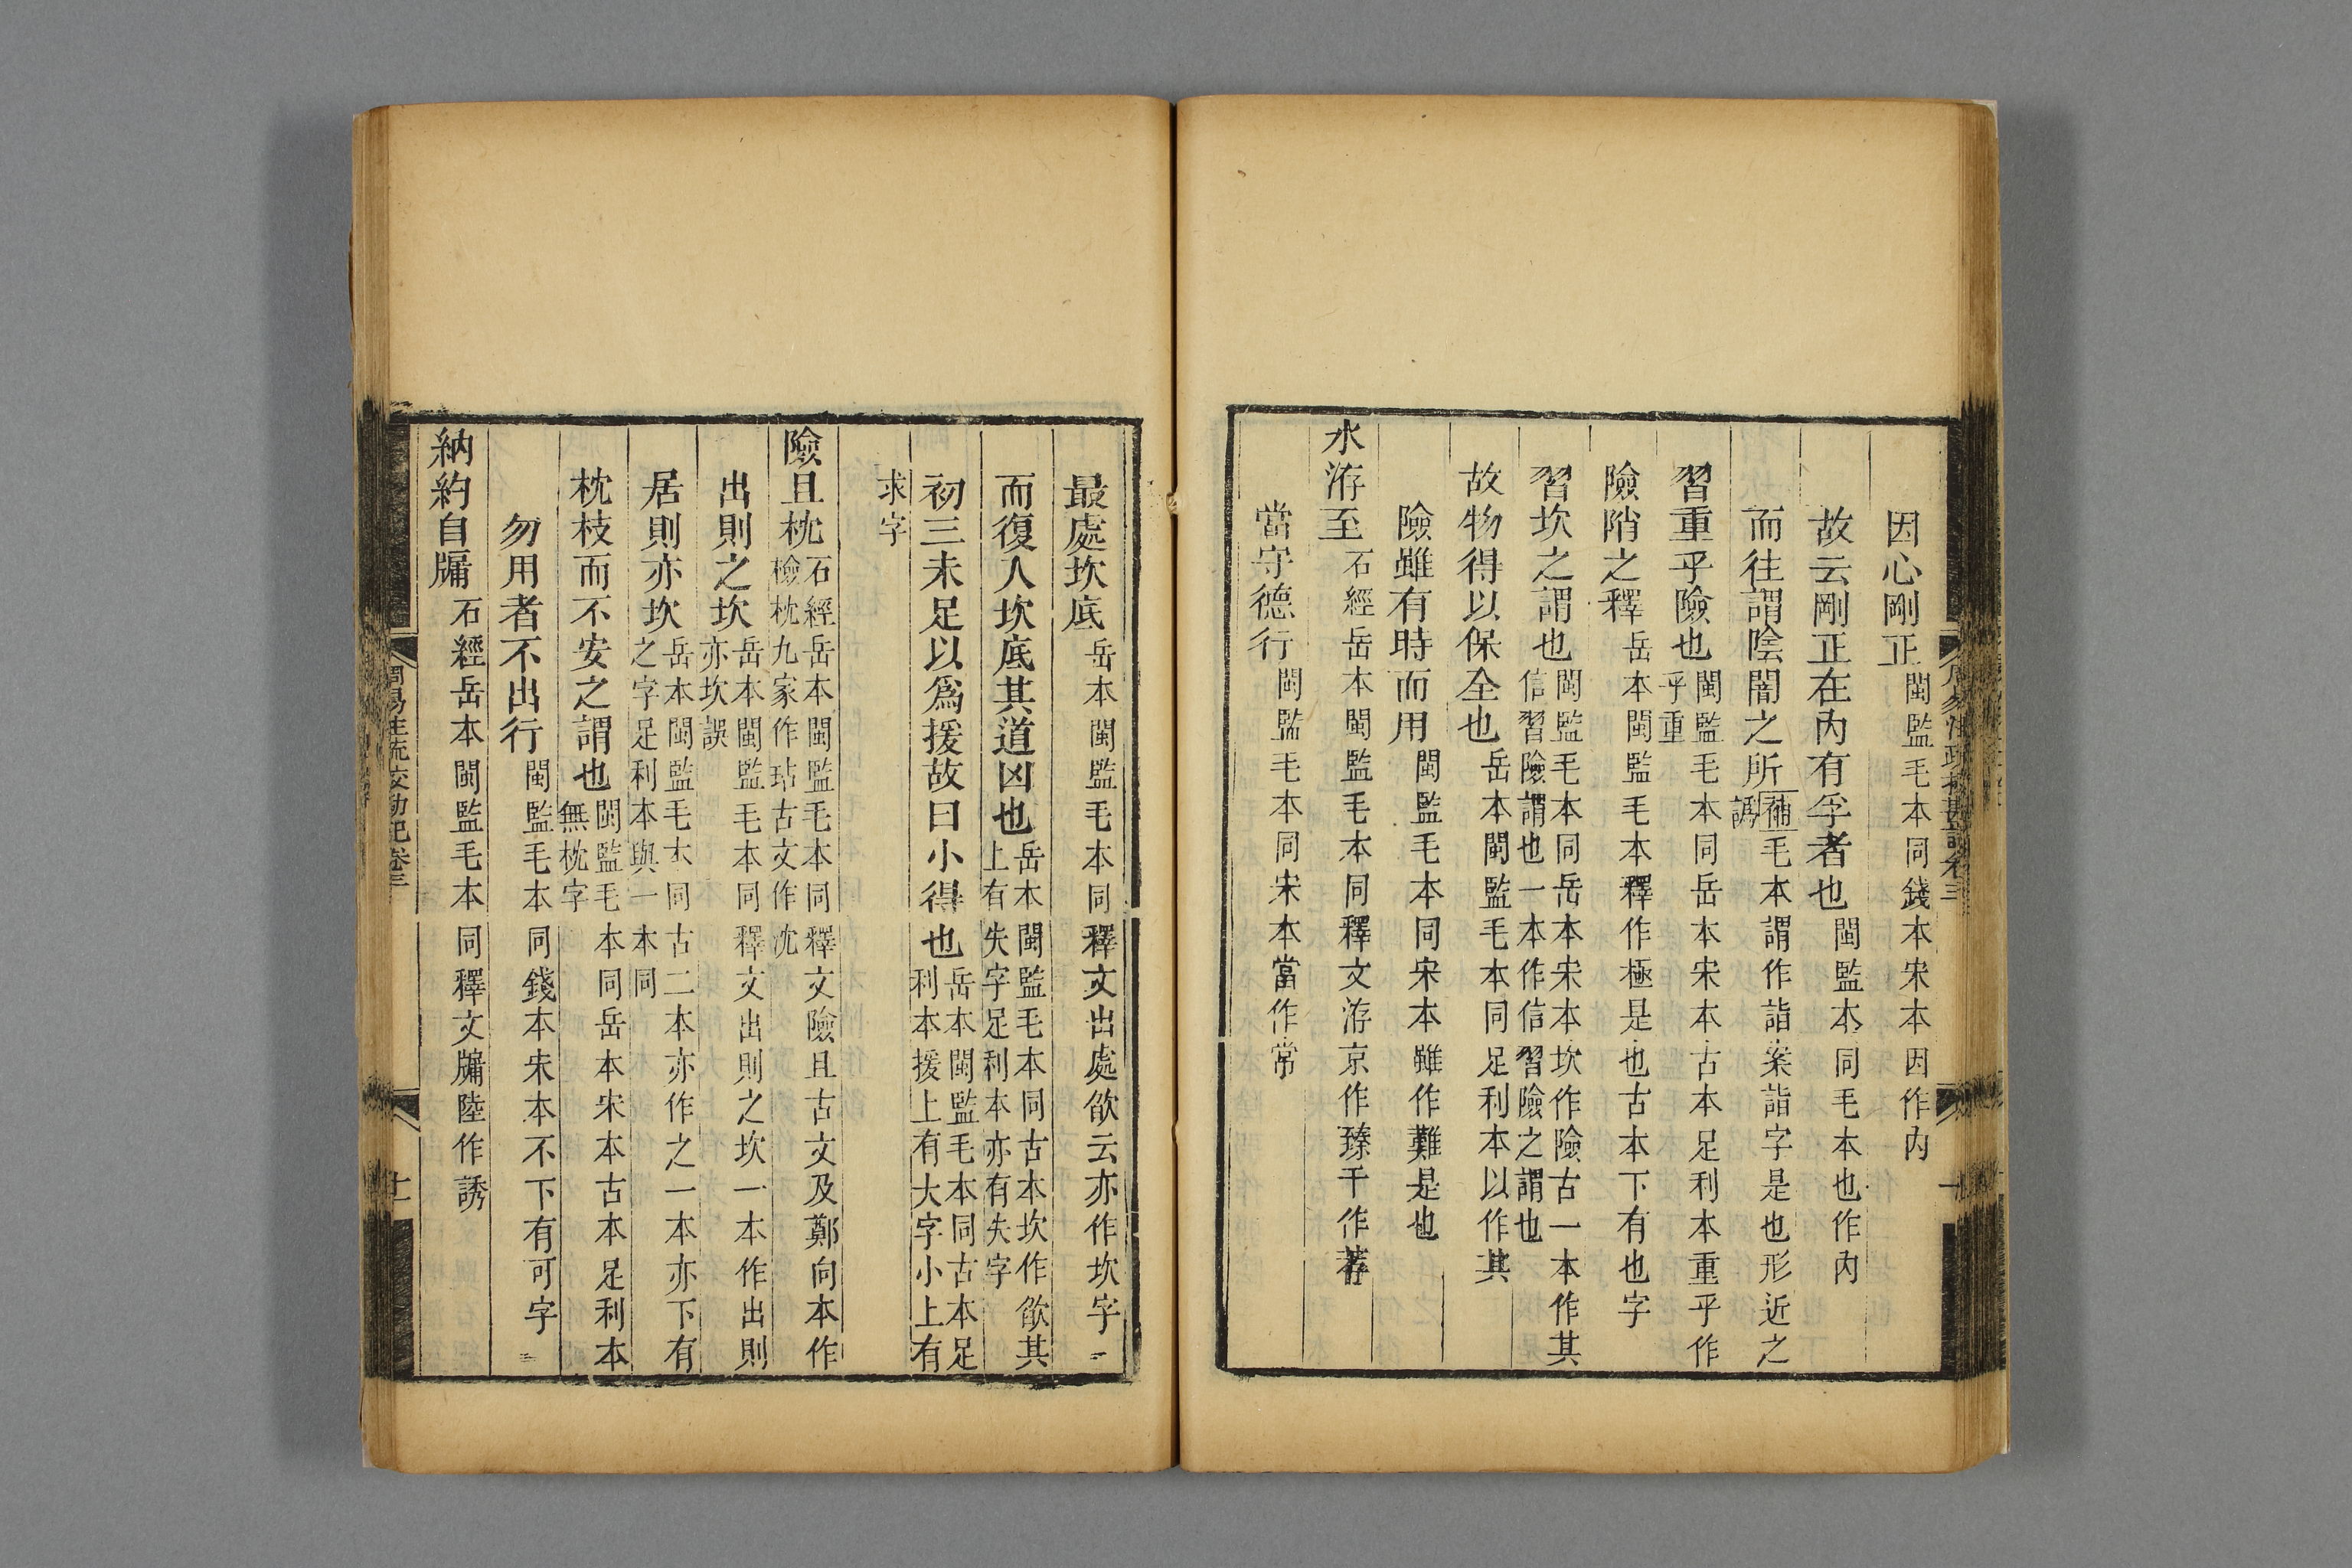 因心剛正閩監毛本同錢本宋本因作内
故云剛正在內有孚者也閩監本同毛本也作內
而往謂陰闇之所補毛本謂作詣案詣字是也形近之
誘
習重乎險也閩監毛本同岳本宋本古本足利本重乎作
乎重
險陗之釋岳本閩監毛本釋作極是也古本下有也字
習坎之謂也閩監毛本同岳本宋本坎作險古一本作其
信習險謂也一本作信習險之謂也
故物得以保全也岳本閩監毛本同足利本以作其
險雖有時而用閩監毛本同宋本雖作難是也
水洊至石經岳本閩監毛本同釋文洊京作臻干作荐
當守德行閩監毛本同宋本當作常
最處坎底岳本閩監毛本同釋文出處欲云亦作坎字
而復入坎底其道凶也岳本閩監毛本同古本坎作欿其
上有失字足利本亦有失字
初三未足以爲援故曰小得也岳本閩監毛本同古本足
利本援上有大字小上有
求字
險且枕石經岳本閩監毛本同釋文險且古文及鄭向本作
檢枕九家作玷古文作沈
出則之坎岳本閩監毛本同釋文出則之坎一本作出則
亦坎誤
居則亦坎岳本閩監毛本同古二本亦作之一本亦下有
之字足利本與一本同
枕枝而不安之謂也閩監毛本同岳本宋本古本足利本
無枕字
勿用者不出行閩監毛本同錢本宋本不下有可字
納約自牖石經岳本閩監毛本同釋文牖陸作誘
周易注疏校勘記卷三